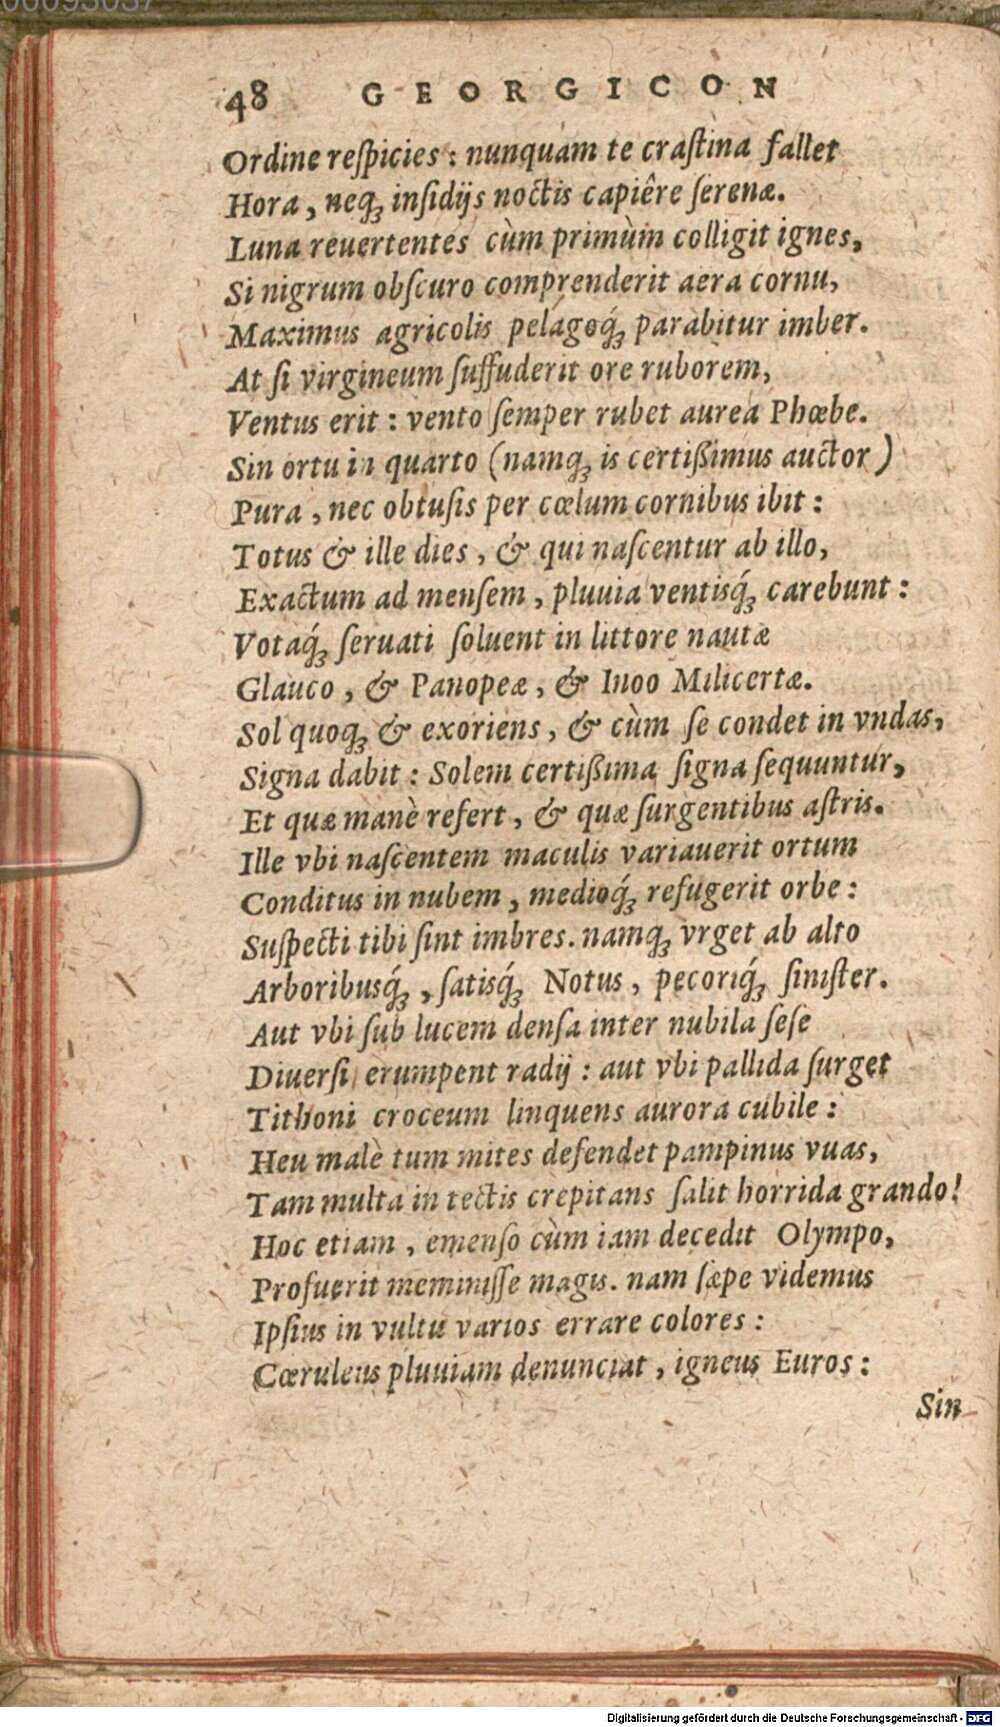 00093037
48 GEORGICON
Ordine reſpicies: nunquam te craſtina fallet
Hora, neqꝫ inſidijs noctis capiêre ſerenæ.
Luna reuertentes cùm primùm colligit ignes,
Si nigrum obſcuro comprenderit aera cornu,
Maximus agricolis pelágoqꝫ́ parabitur imber.
At ſi virgineum ſuffuderit ore ruborem,
Ventus erit: vento ſemper rubet aurea Phœbe.
Sin ortu in quarto (namqꝫ is certißimus auctor)
Pura, nec obtuſis per cœlum cornibus ibit:
Totus & ille dies, & qui naſcentur ab illo,
Exactum ad menſem, pluuia ventisqꝫ́ carebunt:
Votaqꝫ́ ſeruati ſoluent in littore nautæ
Glauco, & Panopeæ, & Inoo Milicertæ.
Sol quoqꝫ & exoriens, & cùm ſe condet in vndas,
Signa dabit: Solem certißima ſigna ſequuntur,
Et quæ manè refert, & quæ ſurgentibus aſtris.
Ille vbi naſcentem maculis variauerit ortum
Conditus in nubem, medioqꝫ́ refugerit orbe:
Suſpecti tibi ſint imbres. namqꝫ vrget ab alto
Arboribusqꝫ́, ſatisqꝫ́ Notus, pecoriqꝫ́ ſiniſter.
Aut vbi ſub lucem denſa inter nubila ſeſe
Diuerſi erumpent radij: aut vbi pallida ſurget
Tithoni croceum linquens aurora cubile:
Heu malè tum mites defendet pampinus vuas,
Tam multa in tectis crepitans ſalit horrida grando!
Hoc etiam, emenſo cùm iam decedit Olympo,
Profuerit meminiſſe magis. nam ſæpe videmus
Ipſius in vultu varios errare colores:
Cœruleus pluuiam denunciat, igneus Euros:
Sin
Digitalisierung gefördert durch die Deutsche Forschungsgemeinschaft - DFG